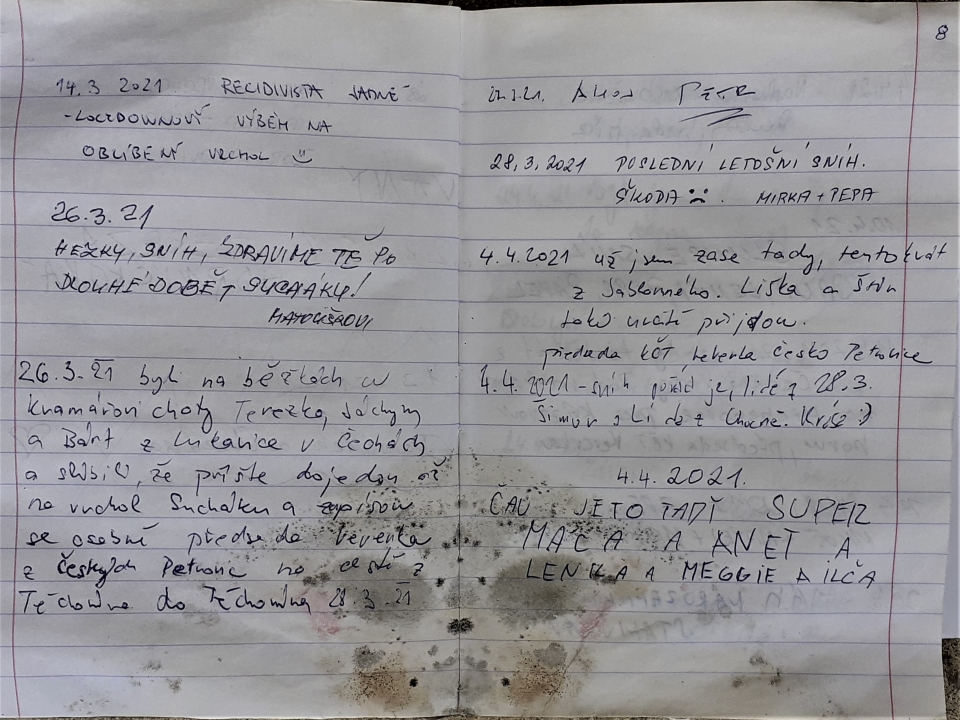 14.3 2021 RECIDIVISTA
-LOCKDOWNOVÝ VÝBĚH NA
OBLÍBENÝ VRCHOL
26.3.21
HEZKÝ, SNÍH, ZDRAVÍME TĚ PO
DLOUHÉ DOBĚ SUCHÁKU!
MATOUŠKOVI
26.3.21 byli na běžkách u
Kramářovi chaty Terezka, Jáchym
a Bárt z v Čechách
a slíbili, že příště dojedou až
na vrchol Sucháku a zapíšou
se osobně předseda Veverka
z Českých Petrovic na cestě z
Těchonína do Těchonína 28.3.21
8
AHOJ PETR
28.3.2021 POSLEDNÍ LETOŠNÍ SNÍH.
ŠKODA MIRKA + PEPA
4.4.2021 už jsem zase tady, tentokrát
z Jablonného. Liška a
také určitě přijdou.
předseda KČT Veverka Česko Petrovice
4.4.2021 - sníh pořád je, lidé z 28.3.
Šimon a Líde z :)
4.4.2021.
ČAU JE TO TADÝ SUPER
MÁČA A ANET A
LENKA A MEGGIE A ILČA